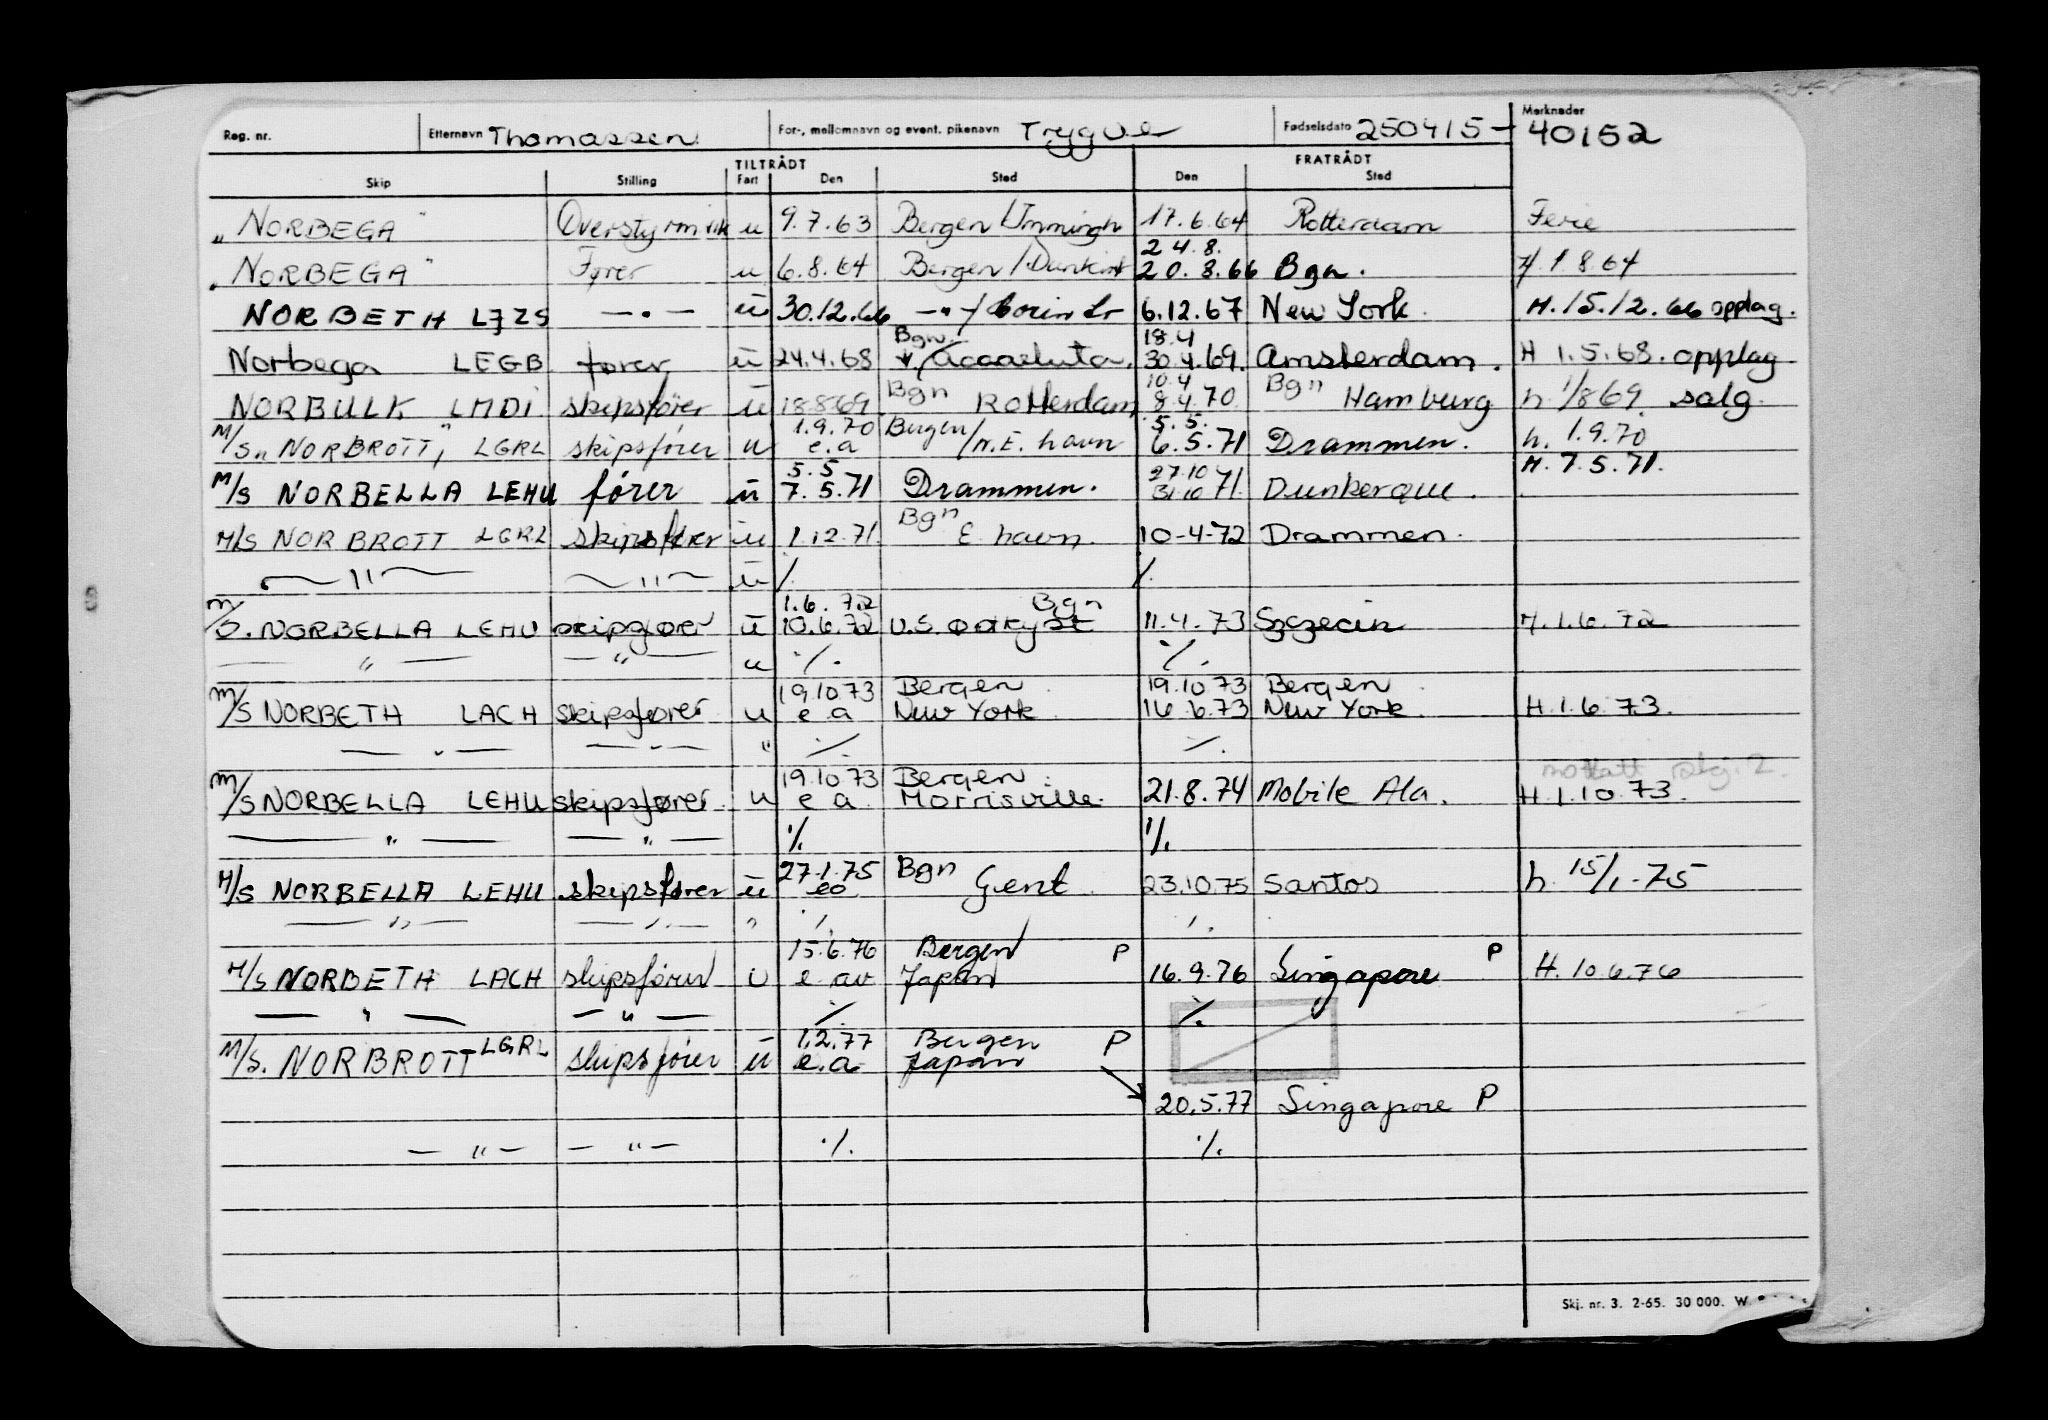 Reg. nr. Etternavn Thomassen For-, mellomnavn og event. pikenavn Trygve Fødselsdato 250415 - Merknader 40152
TILTRÅDT FRATRÅDT
Skip Stilling Fart Den Sted Den Sted
"NORBEGA" Overstyrm u 9.7.63 Bergen / Immingh 17.6.64 Rotterdam Ferie
24.8.
"NORBEGA" Fører u 6.8.64 Bergen / 20.8.66 Bgn. 1 8 64
NORBETH LJZS — " — u 30.12.66 — " — / 6.12.67 New York H. 15.12.66 opplag.
Bgn. 18.4
Norbega LEGB fører u 24.4.68 30.4.69. Amsterdam. H 1.5.68. opplag
Bgn 10.4 Bgn
NORBULK LMDI skipsfører u 18869 Rotterdam 8.4.70 Hamburg h. 1/8 69. salg.
1.9.70 Bergen 5.5. 1.9.70
M/S "NORBROTT" LGRL skipsfører u e.a / N.E. havn 6.5.71 Drammen. h.
5.5 27.10 H. 7.5.71.
M/S NORBELLA LEHU fører u 7.5.71 Drammen. 31.10 71. Dunkerque.
Bgn
M/S NORBROTT LGRL skipsfører u 1.12.71. E. havn. 10-4-72 Drammen.
— " — — " — u ./. ./.
1.6.72 Bgn
M/S. NORBELLA LEHU skipsfører u 10.6.72 U.S. 11.4.73 Szczecin H. 1.6.72
— " — — " — u ./. ./.
19.10.73 Bergen 19.10.73 Bergen
M/S NORBETH LACH skipsfører u e a New York 16.6.73 New York. H. 1.6.73.
— " — — " — " ./. ./.
19.10.73 Bergen. mottatt
M/S NORBELLA LEHU skipsfører u e a. Morrisville. 21.8.74 Mobile Ala. H. 1.10.73.
— " — — " — ./. ./.
27.1.75 Bgn
M/S NORBELLA LEHU skipsfører u ea Gent 23.10.75 Santos h. 15/1-75
— " — — " — " ./. ./.
15.6.76 Bergen P P
M/S NORBETH LACH skipsfører u e av Japan 16.9.76 Singapore H. 10.6.76
— " — — " — ./. ./.
1.2.77 Bergen P
M/S. NORBROTT LGRL skipsfører u e.a Japan
20.5.77 Singapore P
— " — — " — ./. ./.
Skj. nr. 3. 2-65. 30 000. W